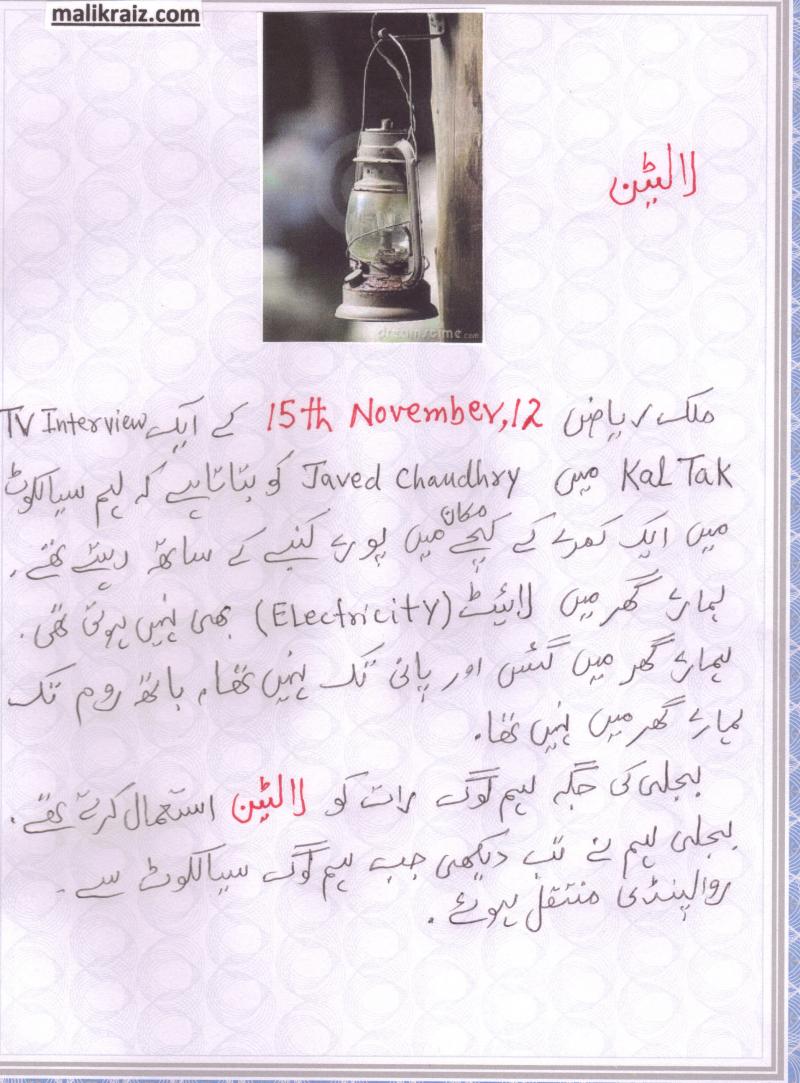 malikraiz.com
لالٹین
dreamstime.com
ملک ریاض 15th November,12 کے ایک TV Interview
Kal Tak میں Javed Chaudhry کو بتاتا ہے کہ ہم سیالکوٹ
میں ایک کمرے کے کچے مکان میں پورے کنبے کے ساتھ رہتے تھے۔
ہمارے گھر میں لائیٹ (Electricity) بھی نہیں ہوتی تھی۔
ہمارے گھر میں گئیس اور پانی تک نہیں تھا، باتھ روم تک
ہمارے گھر میں نہیں تھا۔
بجلی کی جگہ ہم لوگ رات کو لالٹین استعمال کرتے تھے۔
بجلی ہم نے تب دیکھی جب ہم لوگ سیالکوٹ سے
روالپنڈی منتقل ہوئے۔